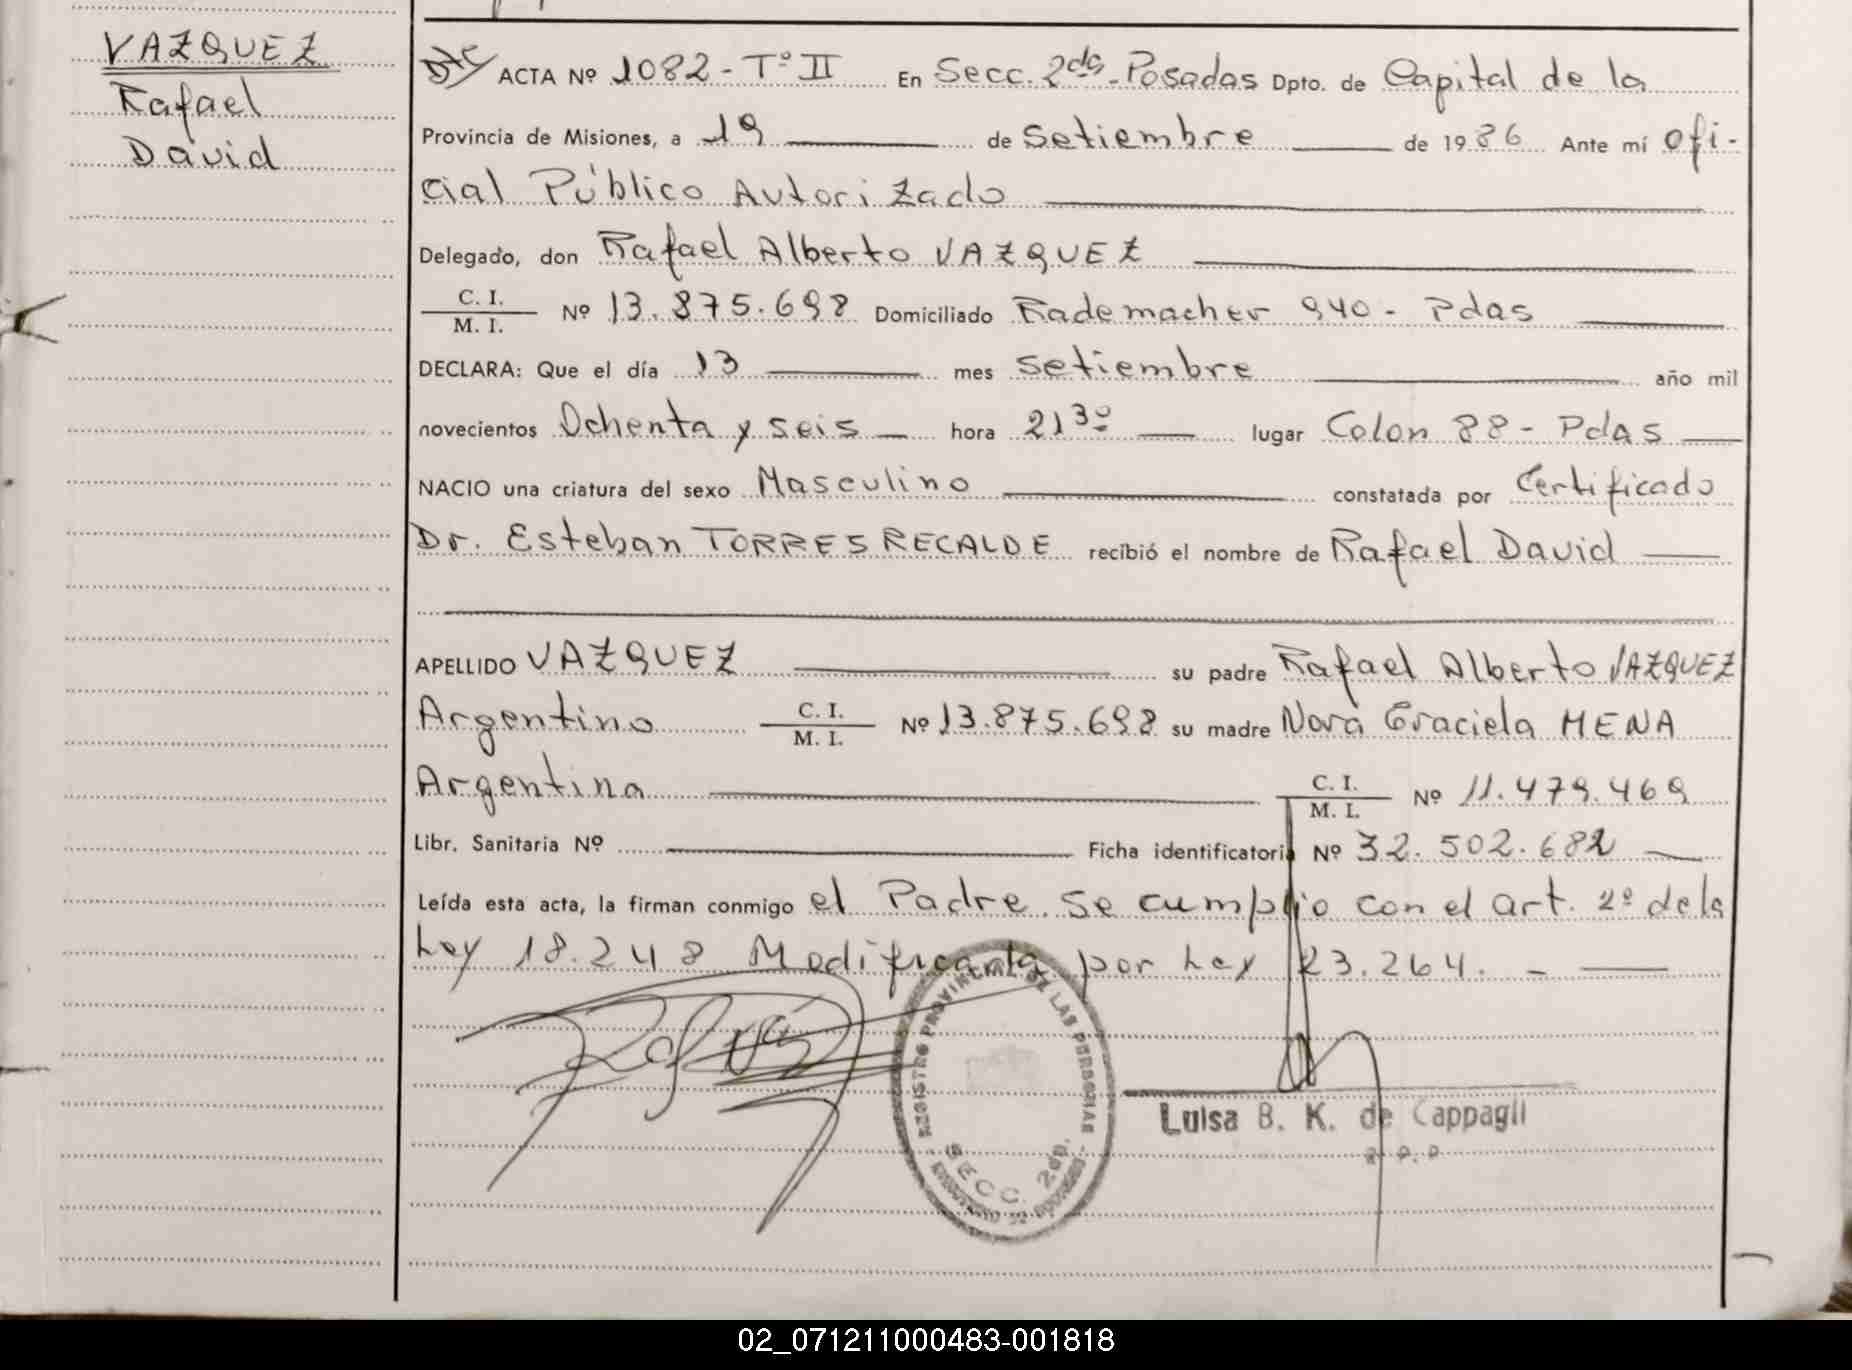 VAZQUEZ
Rafael
David
ACTA Nº 1082 - Tº II En Secc. 2da - Posadas Dpto. de Capital de la
Provincia de Misiones, a 19 de Setiembre de 1986 Ante mí Ofi-
cial Público Autorizado
Delegado, don Rafael Alberto VAZQUEZ
C. I.
M. I. Nº 13.875.698 Domiciliado Rademacher 940 - Pdas
DECLARA: Que el día 13 mes Setiembre año mil
novecientos Ochenta y seis hora 21 30 lugar Colon 88 - Pdas
NACIO una criatura del sexo Masculino constatada por Certificado
Dr. Esteban TORRES RECALDE recibió el nombre de Rafael David
APELLIDO VAZQUEZ su padre Rafael Alberto VAZQUEZ
Argentino C. I. M. I. Nº 13.875.698 su madre Nora Graciela MENA
Argentina C. I. M. I. Nº 11.479.469
Libr. Sanitaria Nº Ficha identificatoria Nº 32.502.682
Leída esta acta, la firman conmigo el Padre. Se cumplio con el art. 2º de la
Ley 18.248 Modificada por Ley 23.264. -
REGISTRO PROVINCIAL DE LAS PERSONAS
SECC. 2da.
Luisa B. K. de Cappagli
02_071211000483-001818